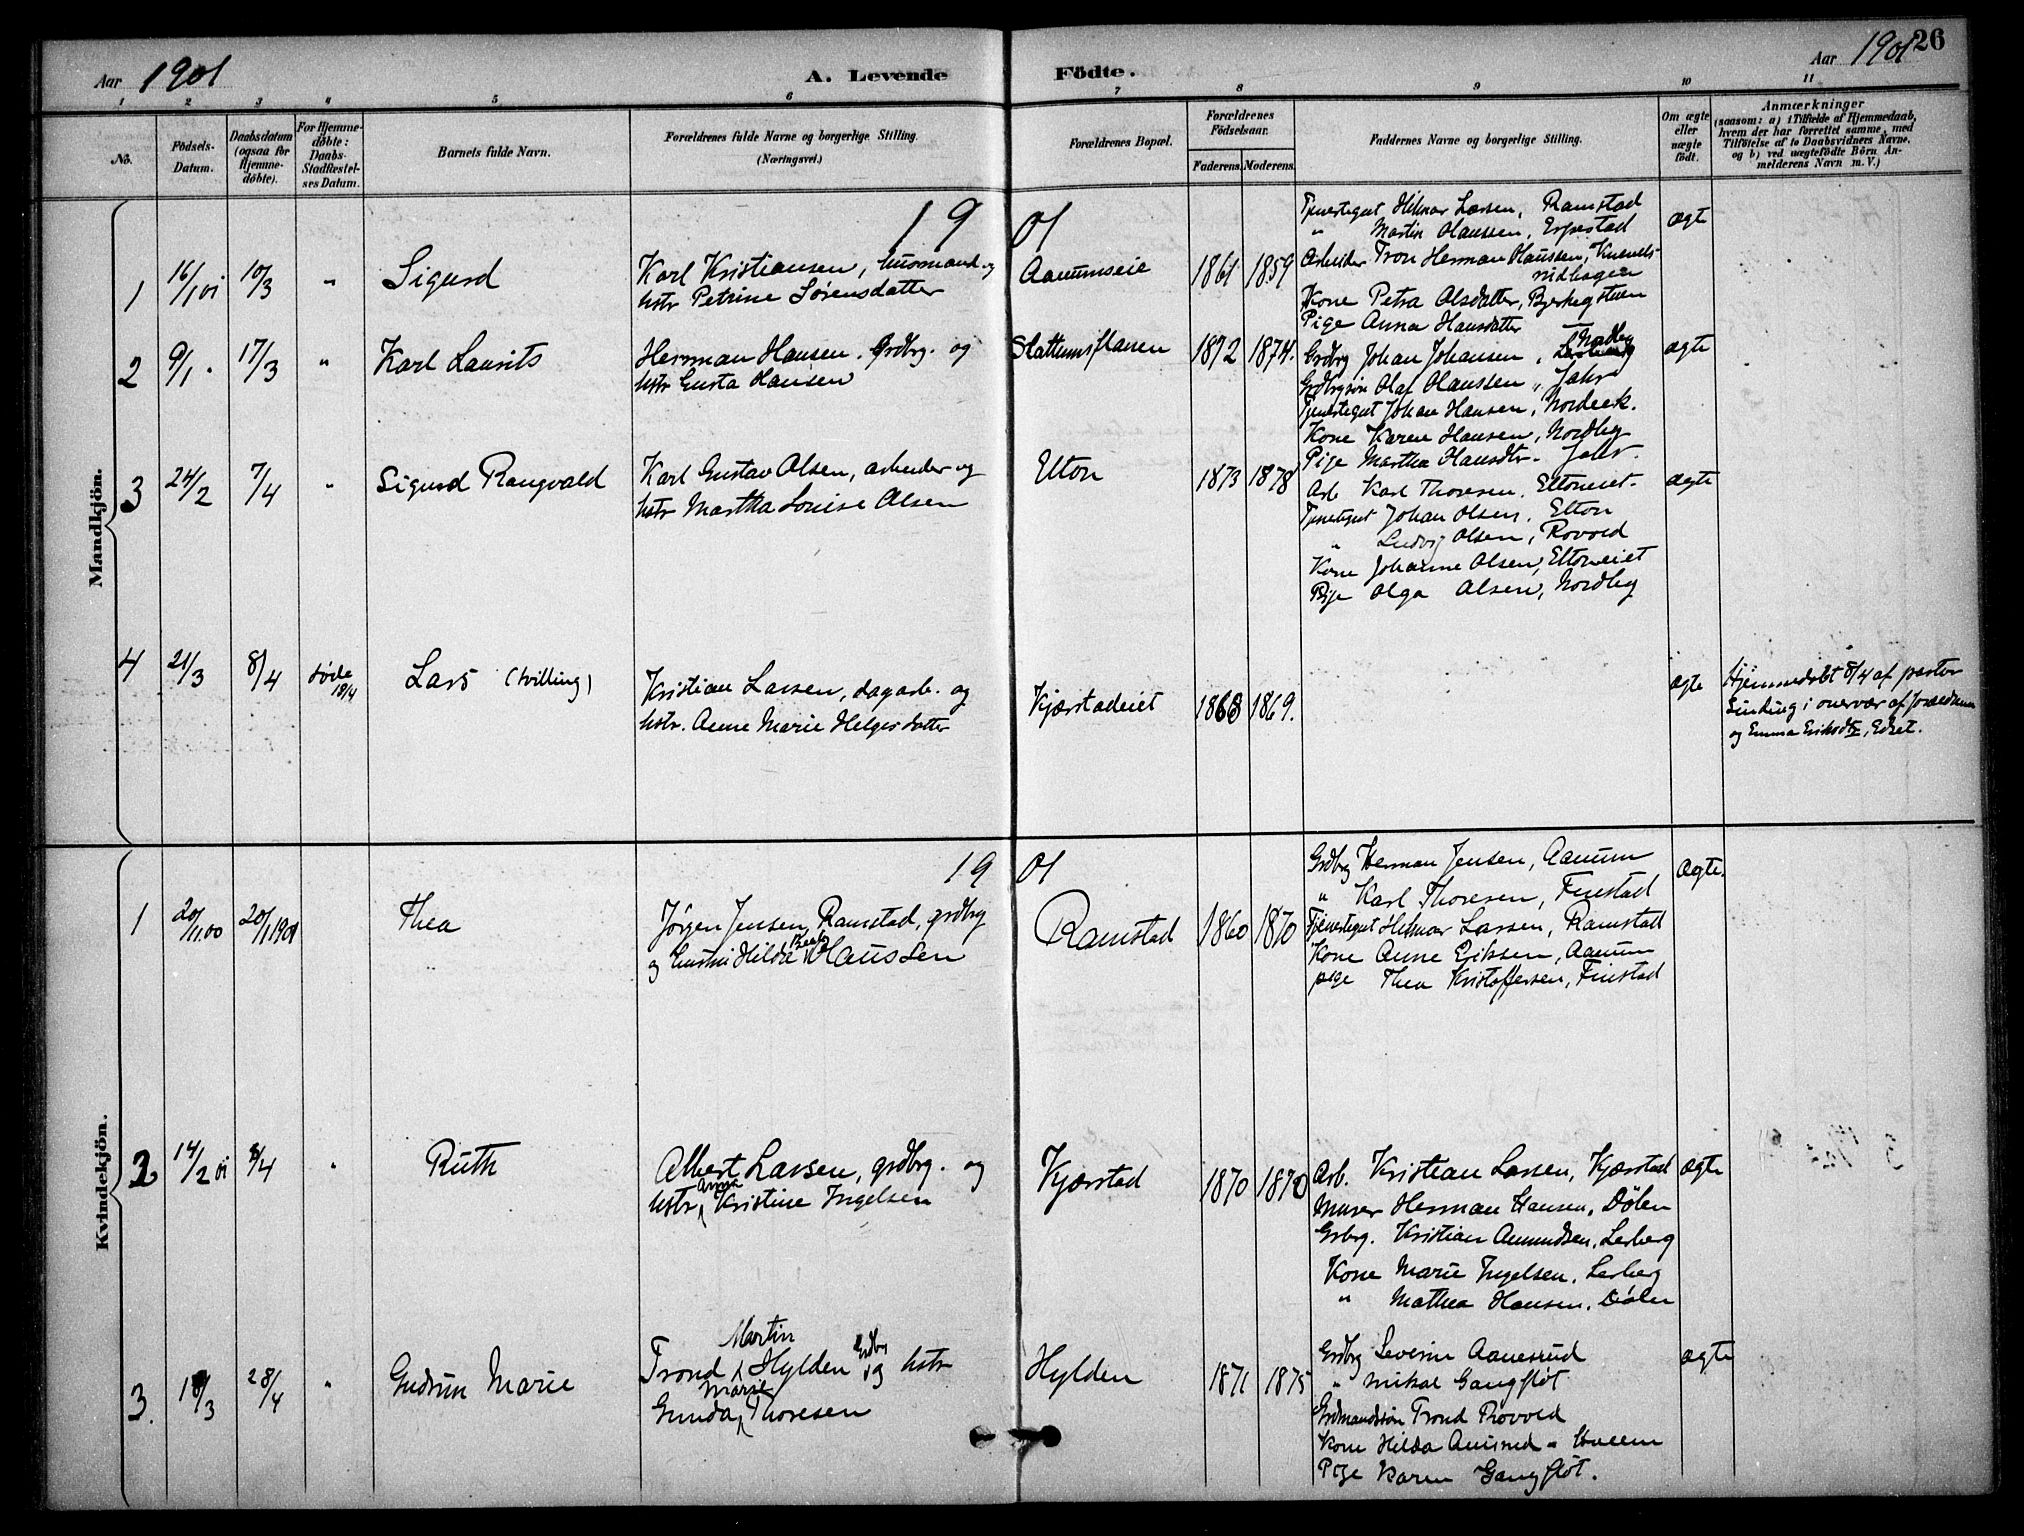 Aar 1901
A. Levende Födte.
Aar 1901
26
1 2 3 4 5 6 7 8 9 10 11
No.
Födsels-Datum.
Daabsdatum (ogsaa for Hjemme-döbte).
For Hjemme-döbte: Daabs-Stadfæstel-ses Datum.
Barnets fulde Navn.
Forældrenes fulde Navne og borgerlige Stilling.
(Næringsvei.)
Forældrenes Bopæl.
Forældrenes Födselsaar.
Faderens. Moderens.
Faddernes Navne og borgerlige Stilling.
Om ægte eller uægte födt.
Anmærkninger
(saasom: a) i Tilfælde af Hjemmedaab,
hvem der har forrettet samme, med
Tilföielse af to Daabsvidners Navne,
og b) ved uægtefödte Börn An-
melderens Navn m. V.)
Mandkjön.
19 01
1 16/1 01 10/3 " Sigurd
Karl Kristiansen, husmand og
hstr Petrine Sørensdatter
Aanumseie 1861 1859
Tjenestegut Hilmar Larsen, Ramstad
" Martin Hanssen, Erpestad
Arbeider Tron Herman Hanssen,
Kone Petra Olsdatter,
Pige Anna Hansdatter
ægte
2 9/1 17/3 " Karl Laurits
Herman Hansen, Grdbrg. og
hstr Gusta Hansen
Slattumsflanen 1872 1874.
Grdbrg Johan Johansen, Nordby
Grdbrgsøn Olaf Hanssen, Jahr
Tjenestegut Johan Hansen, Nordeek.
Kone Karen Hansen, Nordby
Pige Martha Hansdtr. Jahr.
ægte
3 24/2 7/4 " Sigurd Rangvald
Karl Gustav Olsen, arbeider og
hstr Martha Louise Olsen
Elton 1873 1878
Arb Karl Thoresen, Eltoneiet.
Tjenestegut Johan Olsen, Elton
" Ludvig Olsen, Rovold
Kone Johanne Olsen, Eltoneiet
Pige Olga Olsen, Nordby
ægte
4 21/3 8/4 18/4 Lars (tvilling)
Kristian Larsen, dagarb. og
hstr. Anne Marie Helgesdatter
Kjærstadeiet 1868 1869.
ægte
Hjemmedøbt 8/4 af pastor
Sinding i overvær af forældrene
og Emma Eriksdtr, Edset.
Kvindekjön.
19 01
1 20/11.00 20/1 1901 Thea
Jørgen Jensen Ramstad, grdbrg
og hustru Hilda Beate Hanssen
Ramstad 1860 1870
Grdbrg Herman Jensen, Aanum
" Karl Thoresen, Finstad
Tjenestegut Hilmar Larsen, Ramstad
Kone Anne Eriksen, Aanum
pige Thea Kristoffersen, Finstad
ægte.
2 14/2 01 8/4 " Ruth
Albert Larsen, grdbrg. og
hstr Anna Kristine Ingelsen
Kjærstad 1870 1870
Arb. Kristian Larsen, Kjærstad
Murer Herman Hansen, Dølen
Grbrg. Kristian Amundsen, Lerberg
Kone Marie Ingelsen, Lerberg
" Mathea Hansen, Dølen
ægte
3. 18/3 28/4 " Gudrun Marie
Trond Martin Hylden Grdbrg og hstr
Gunda Marie Thoresen
Hylden 1871 1875
Grdbrg Severin Aanesrud
" Mikal Gangfløt
Grdmandssøn Trond Rovold
Kone Hilda
Pige Karen Gangfløt.
ægte